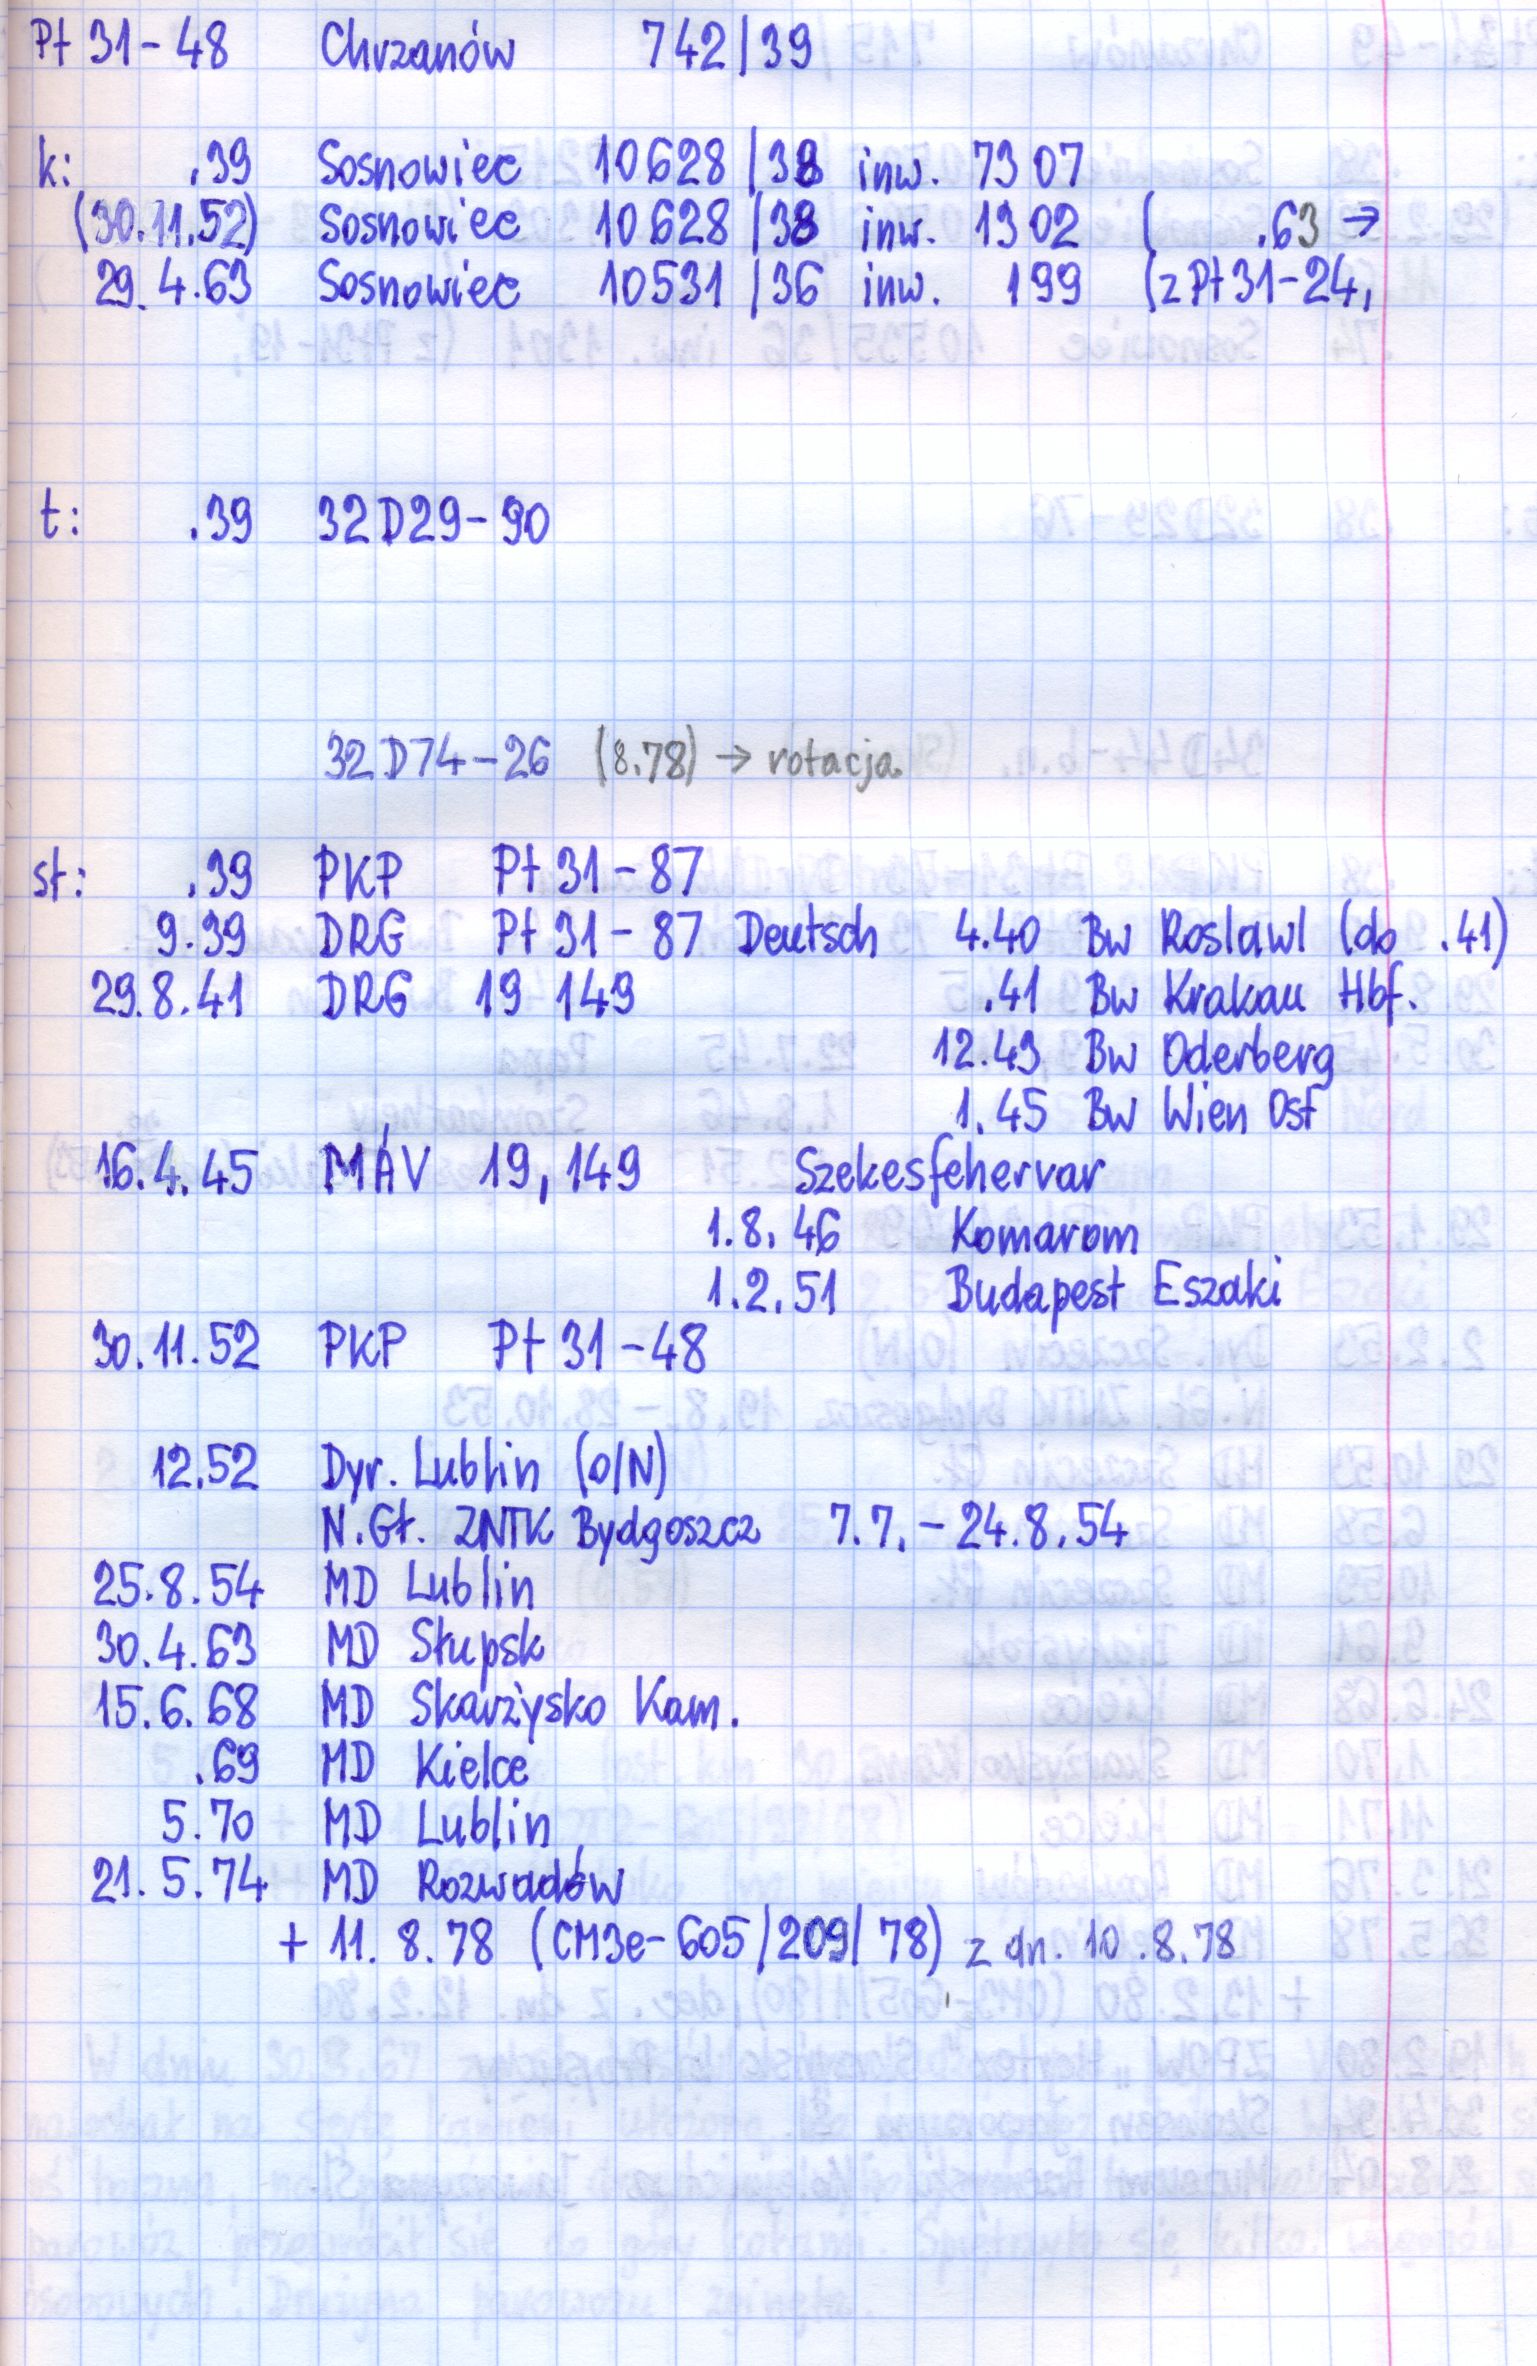 Pt 31-48 Chrzanów 742/39
k: .39 Sosnowiec 10628/38 inw. 7307
(30.11.52) Sosnowiec 10628/38 inw. 1302 ( .63 →
29.4.63 Sosnowiec 10531/36 inw. 199 (z Pt31-24,
t: .39 32D29-90
32D74-26 (8.78) → rotacja
st: .39 PKP Pt 31-87
9.39 DRG Pt 31-87 Deutsch 4.40 Bw Roslawl (do .41)
29.8.41 DRG 19 149 .41 Bw Krakau Hbf.
12.43 Bw Oderberg
1.45 Bw Wien Ost
16.4.45 MÁV 19,149 Szekesfehervar
1.8.46 Komarom
1.2.51 Budapest Eszaki
30.11.52 PKP Pt 31-48
12.52 Dyr. Lublin (O/N)
N.Gł. ZNTK Bydgoszcz 7.7.-24.8.54
25.8.54 MD Lublin
30.4.63 MD Słupsk
15.6.68 MD Skarżysko Kam.
.69 MD Kielce
5.70 MD Lublin
21.5.74 MD Rozwadów
+ 11.8.78 (CM3e-605/209/78) z dn. 10.8.78